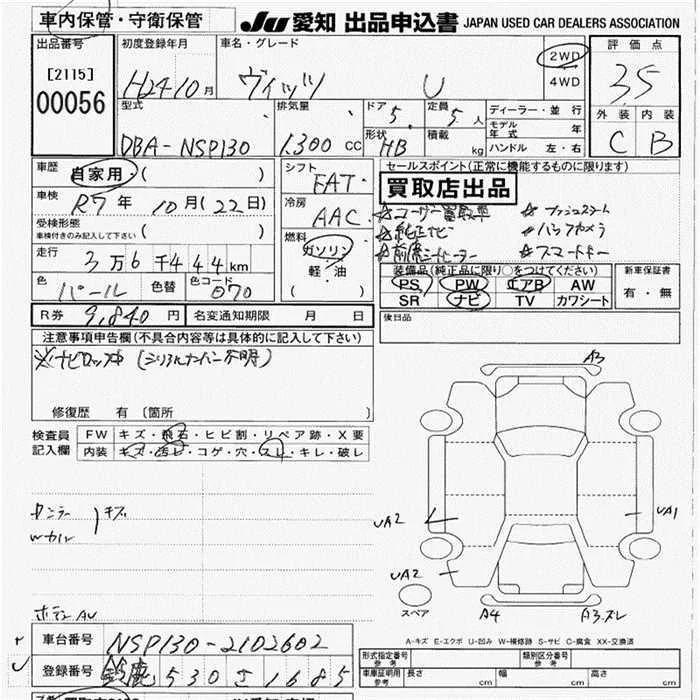 車内保管・守衛保管 JU 愛知 出品申込書 JAPAN USED CAR DEALERS ASSOCIATION
出品番号 初度登録年月 車名・グレード 2WD 評価点
[2115] H24・10月 ヴィッツ U 4WD 3.5
00056
型式 排気量 ドア 定員 ディーラー・並行 外装 内装
5 5人 モデル年式 年
DBA-NSP130 1,300cc 形状 HB 積載 kg ハンドル 左・右 C B
車歴 自家用・( ) シフト FAT セールスポイント(正常に機能するものに限ります)
買取店出品
車検 R7年10月(22日) 冷房 AAC ☆ユーザー買取車 ☆プッシュスタート
受検形態 ☆純正ナビ ☆バックカメラ
車検付きのみ記入して下さい ( ) 燃料 ☆スマートキー
走行 3万6千444km ガソリン・軽・油 ( ) 装備品(純正品に限り○をつけてください) 新車保証書
色 パール 色替 色コード 070 PS PW エアB AW 有・無
SR ナビ TV カワシート
R券 9,840円 名変通知期限 月 日 後日品
注意事項申告欄(不具合内容等は具体的に記入して下さい)
※ナビロック中(シリアルナンバー不明)
修復歴 有 [箇所 ]
A3
検査員記入欄 FW キズ・飛石・ヒビ割・リペア跡・X要
内装 キズ・汚レ・コゲ・穴・スレ・キレ・破レ
キズ
UA2 UA1
UA2
スペア A4 A3.スレ
A-キズ E-エクボ U-凹み W-補修跡 S-サビ C-腐食 XX-交換済
車台番号 NSP130-2102602 形式指定番号 参考 類別区分番号 参考
登録番号 鈴鹿 530 さ 1685 車庫証明用 参考 長さ cm 幅 cm 高さ cm